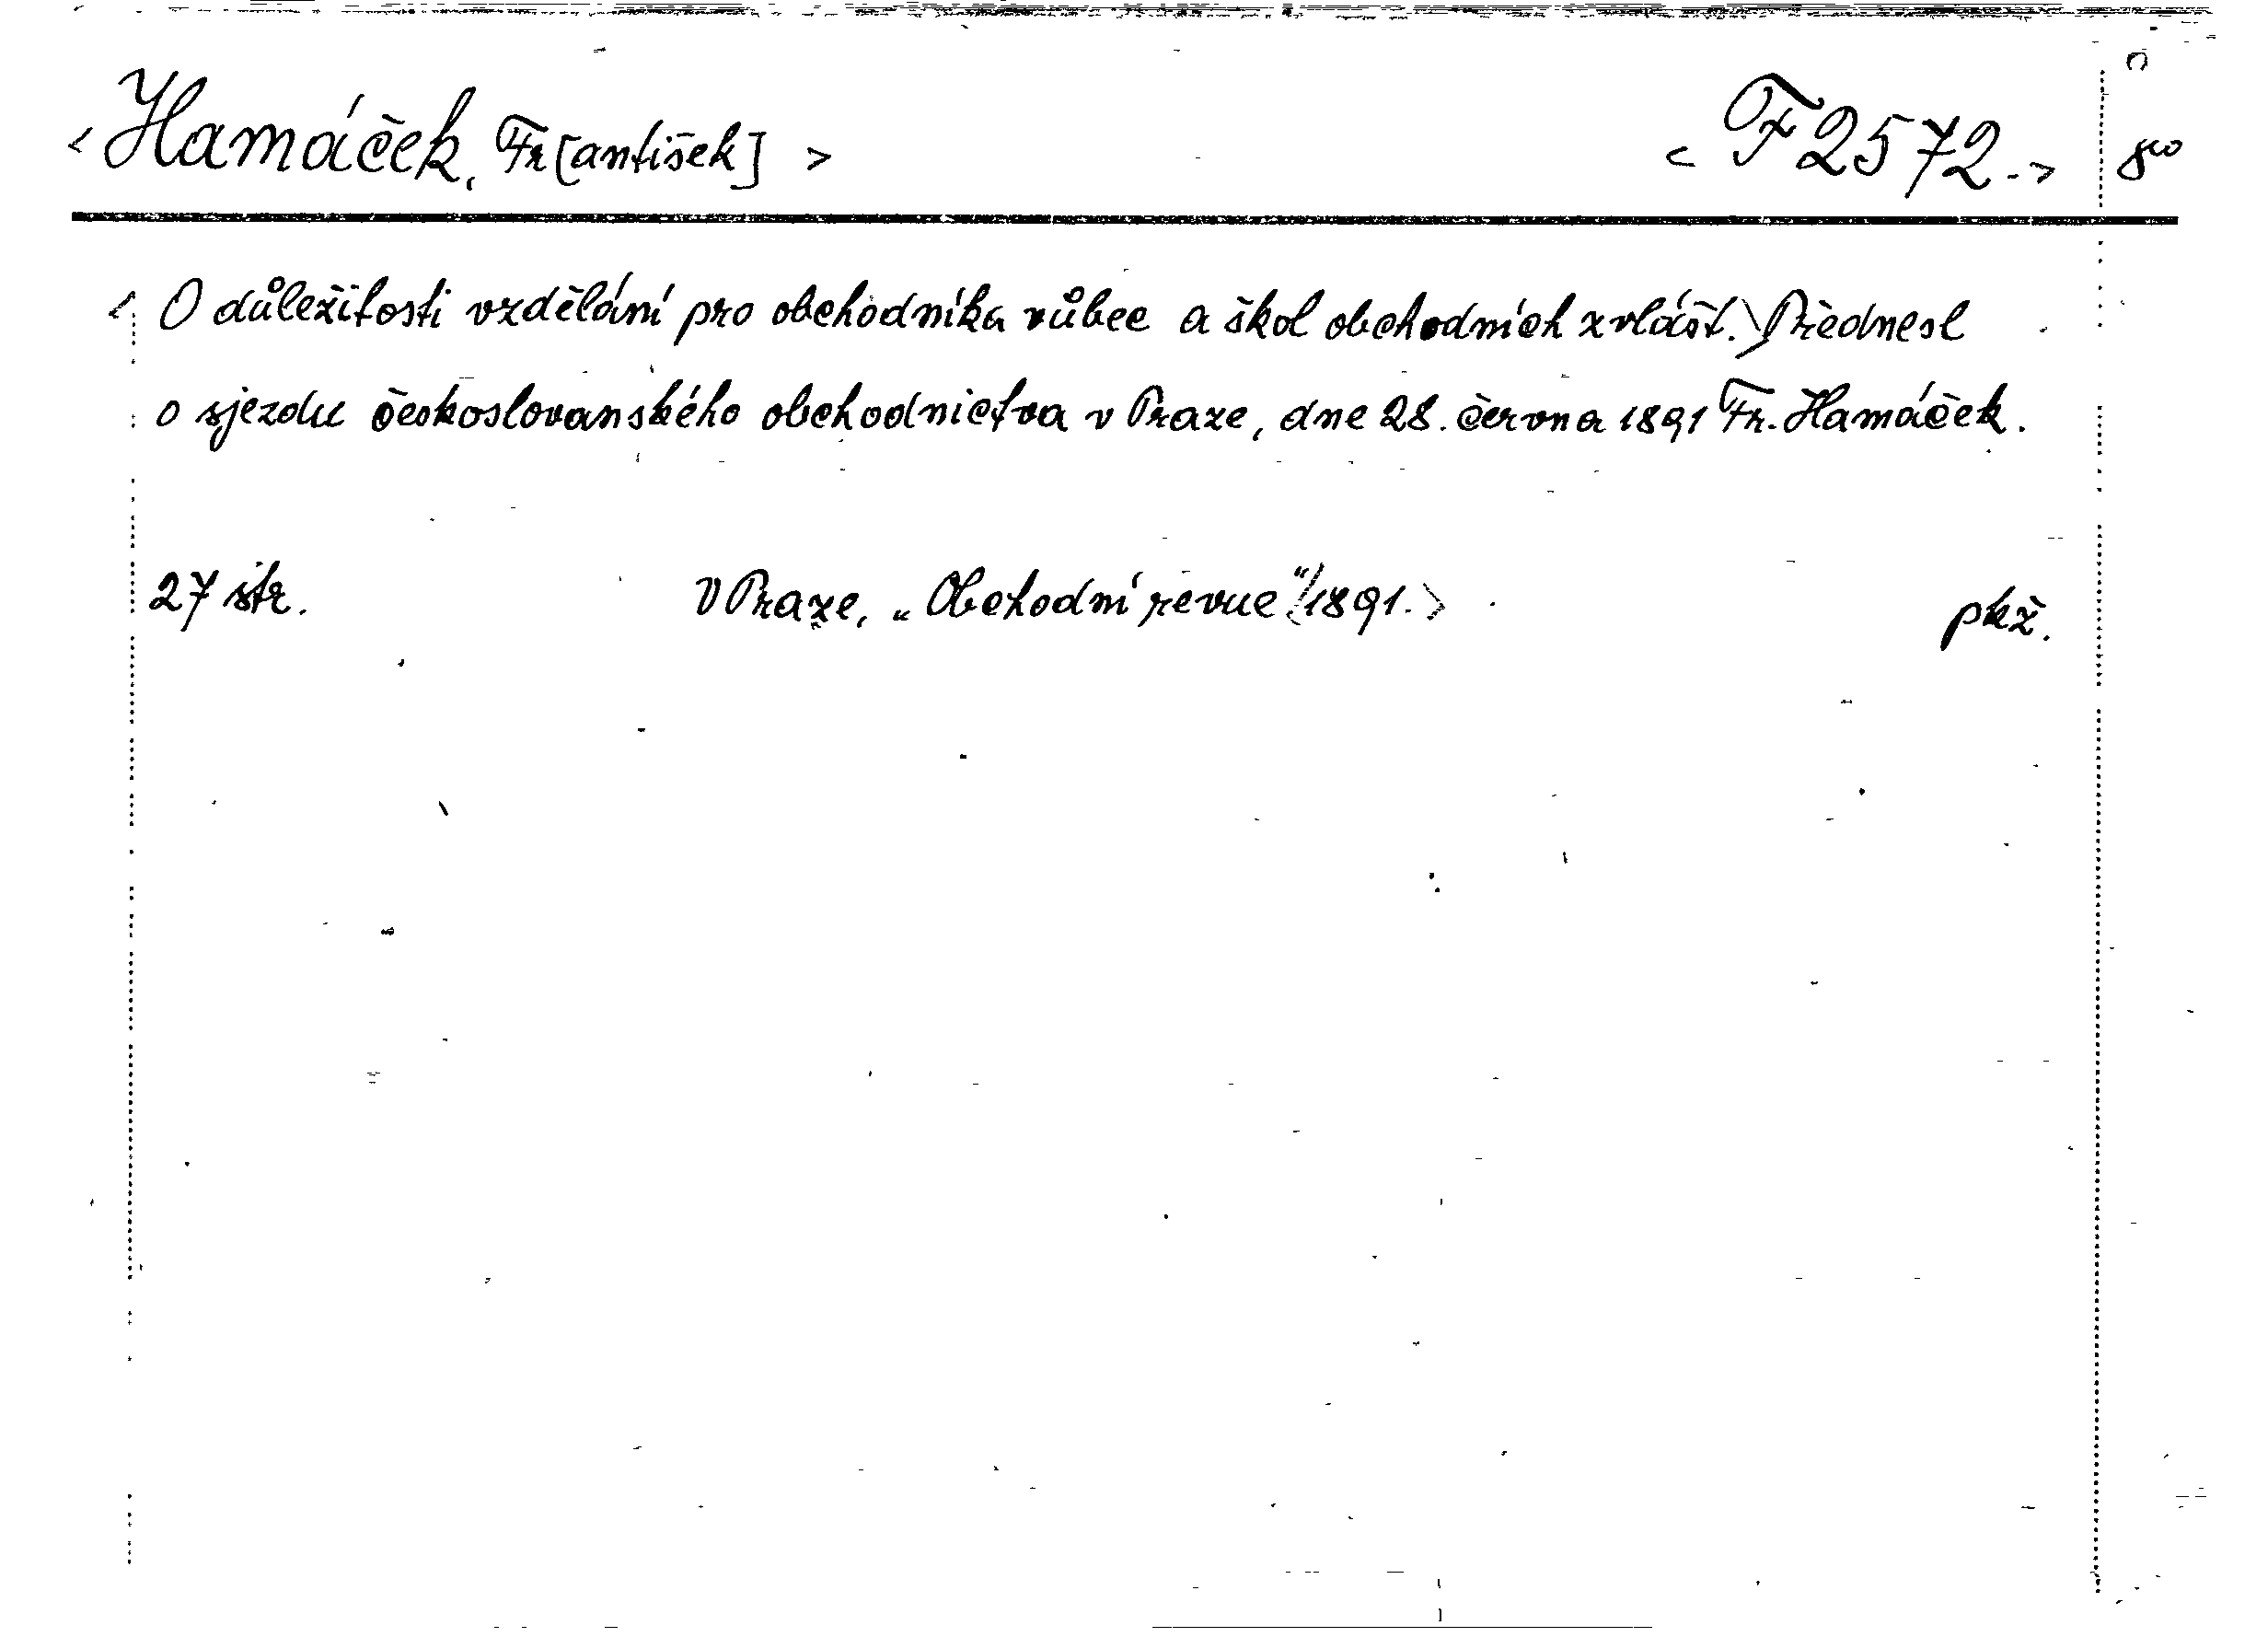 < Hamáček, Fr[antišek] > < F 2572. > 8°
< O důležitosti vzdělání pro obchodníka vůbec a škol obchodních zvlášť.> Přednesl
o sjezdu českoslovanského obchodnictva v Praze, dne 28. června 1891 Fr. Hamáček.
27 str. V Praze, „Obchodní revue“ 1891.> pkž.